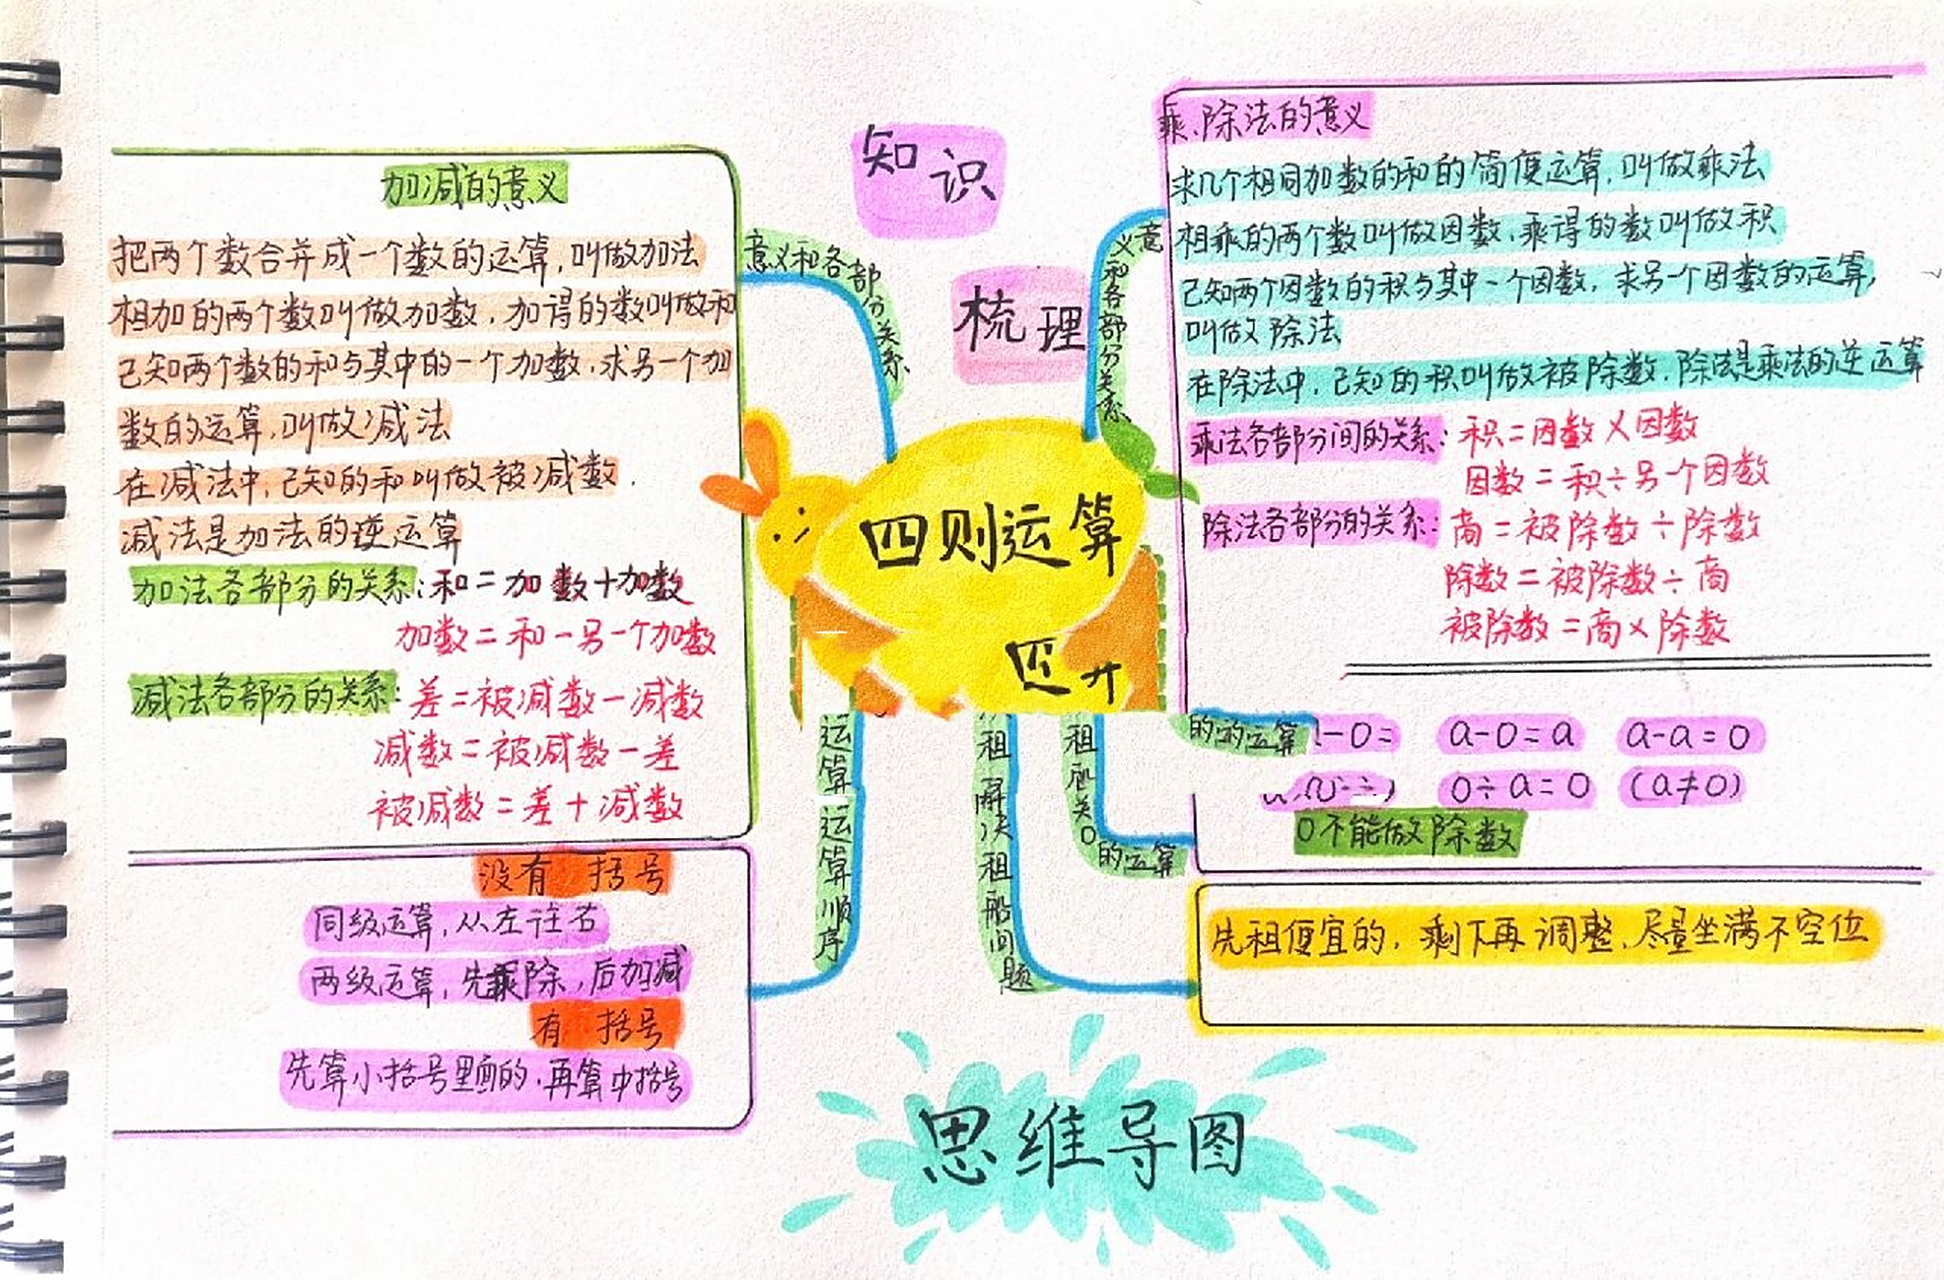 知识
梳理
四则运算
思维导图
意义和各部分关系
加减的意义
把两个数合并成一个数的运算,叫做加法
相加的两个数叫做加数,加得的数叫做和
已知两个数的和与其中的一个加数,求另一个加
数的运算,叫做减法
在减法中,已知的和叫做被减数.
减法是加法的逆运算
加法各部分的关系:和=加数+加数
加数=和-另一个加数
减法各部分的关系:差=被减数-减数
减数=被减数-差
被减数=差+减数
意义和各部分关系
乘.除法的意义
求几个相同加数的和的简便运算,叫做乘法
相乘的两个数叫做因数,乘得的数叫做积
已知两个因数的积与其中一个因数,求另一个因数的运算,
叫做除法
在除法中,已知的积叫做被除数,除法是乘法的逆运算
乘法各部分间的关系:积=因数×因数
因数=积÷另一个因数
除法各部分的关系:商=被除数÷除数
除数=被除数÷商
被除数=商×除数
运算运算顺序
没有 括号
同级运算,从左往右
两级运算,先乘除,后加减
有 括号
先算小括号里面的,再算中括号
的的运算
关0的运算
-0= a-0=a a-a=0
0÷a=0 (a≠0)
0不能做除数
租解决租船问题
先租便宜的,剩下再调整,尽量坐满不空位